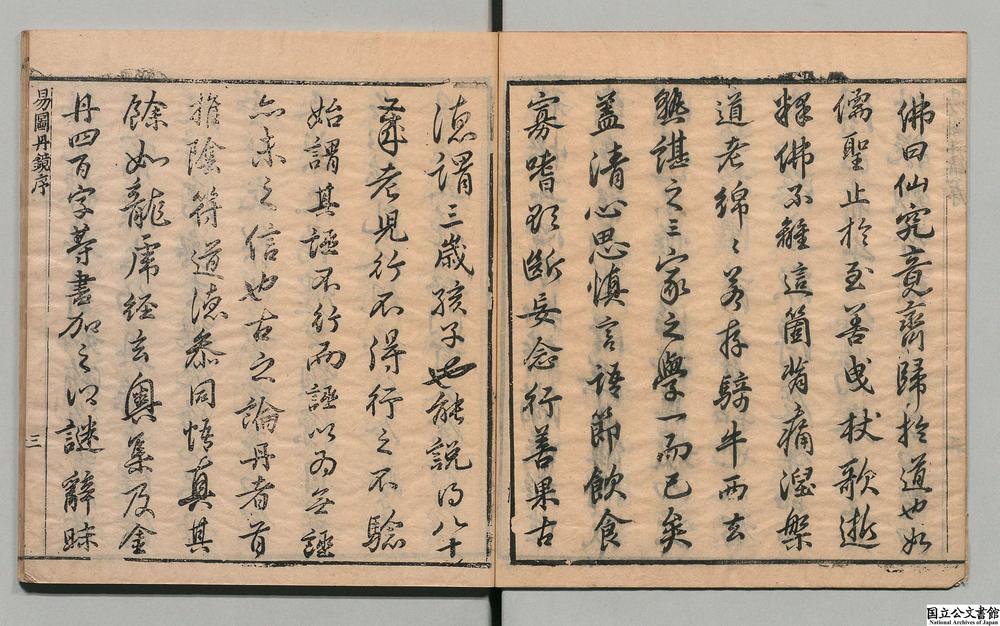 佛曰仙究竟齊歸於道也如
儒聖止於至善曳杖歌逝
釋佛不離這箇背痛涅槃
道老綿〻若存騎牛西去
孰謂之三家之學一而已矣
蓋清心思慎言語節飲食
寡嗜欲斷妄念行善果古
德謂三歲孩子也能說得八十
歲老兒行不得行之不驗
始謂其誣不行而誣以為無誣
亦未之信也古之論丹者首
推陰符道德參同悟真其
餘如龍虎經玄奧集及金
丹四百字等書加之以謎辭昧
易圖丹鏡序
三
国立公文書館
National Archives of Japan